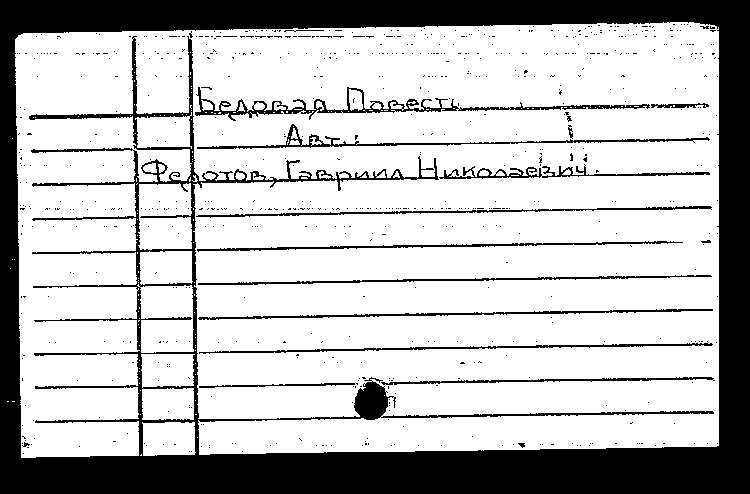 Бедовая Повесть
Авт.:
Федотов, Гавриил Николаевич.